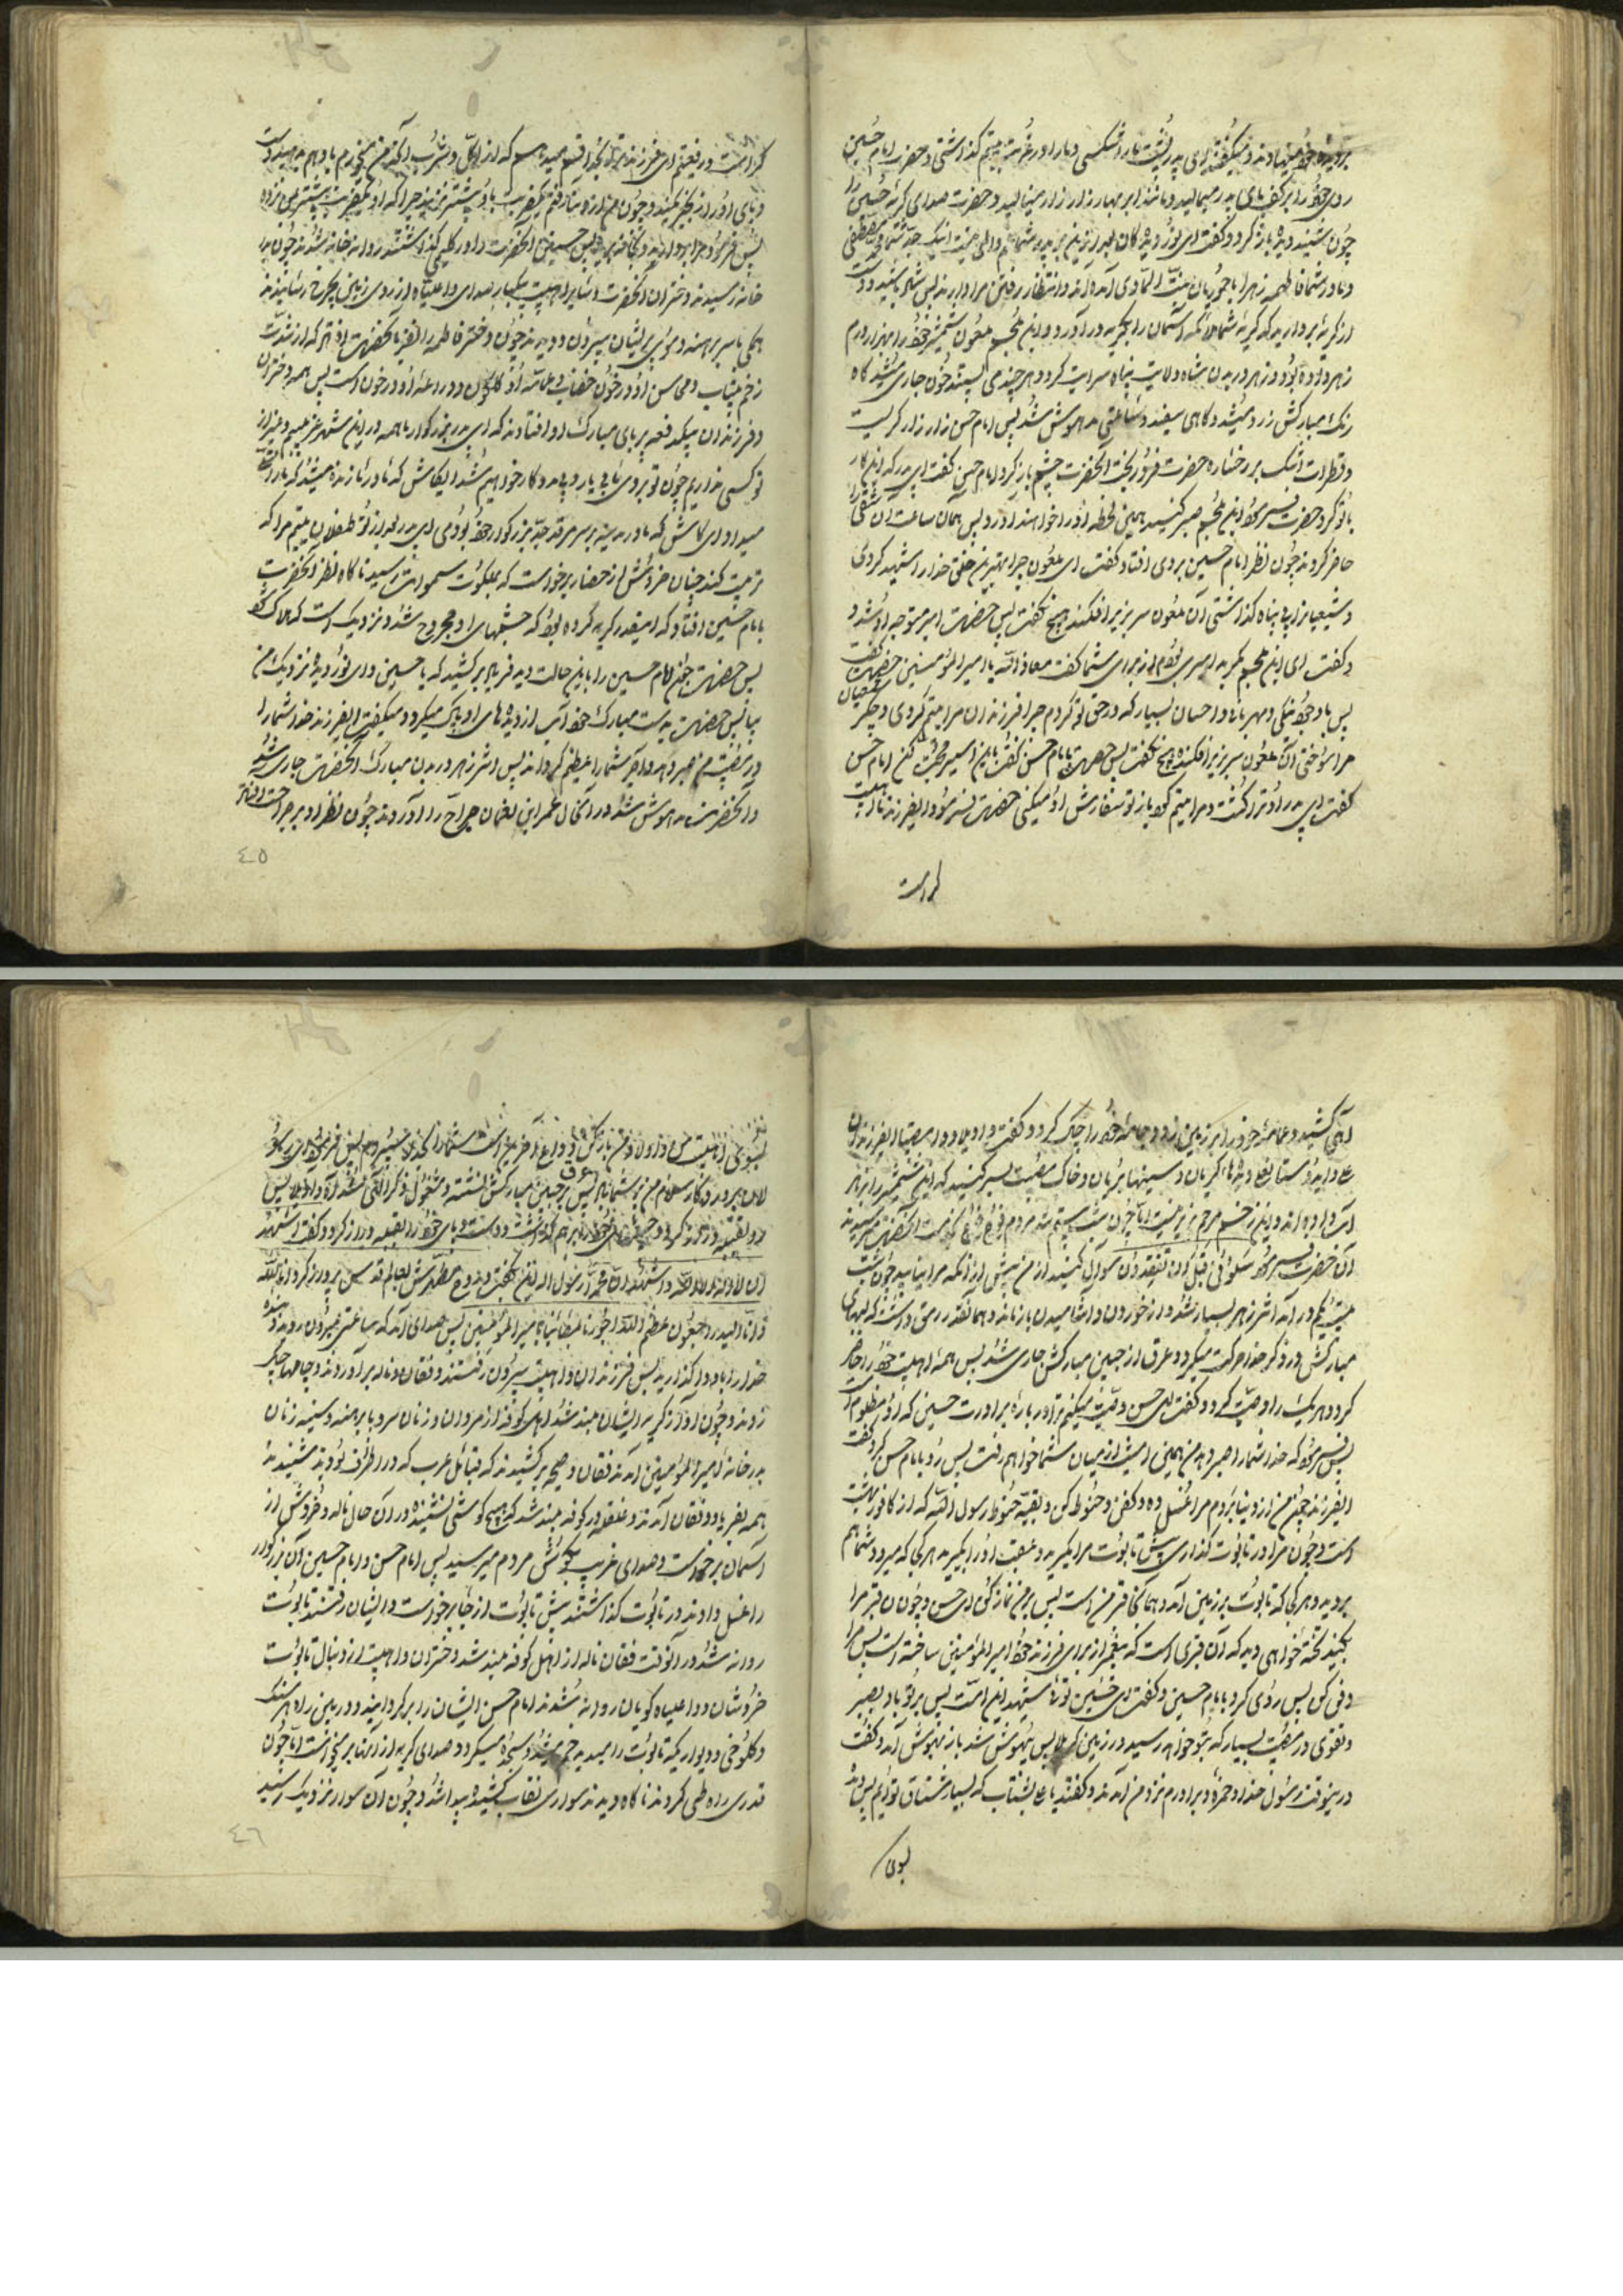 بر دیده خود مینهادند و میگفتند ای پدر پشت ما را شکستی و ما را در غربت یتیم گذاشتی و حضرت امام حسین
روی خود را بر کف پای پدر میمالید و مانند ابر بهار زار زار مینالید و حضرت صدای گریه حسین را
چون شنید دیده باز کرد و گفت ای نور دیده کان بعد ازین بر پدر شما غم و المی نیست اینک جد شما محمد مصطفی
و مادر شما فاطمه زهرا با حوریان آمده اند و انتظار رفتن مرا دارند پس شاد باشید و دست
از گریه بردارید که گریه شما ملائکه آسمان را بگریه در آورد و ابن ملجم ملعون شمشیر خود را بهزار درم
زهر داده بود و زهر در بدن شاه ولایت پناه سرایت کرد و هر چند می بستند خون جاری میشد گاه
رنک مبارکش زرد میشد و گاهی سفید و ساعتی مدهوش شد پس امام حسن زار زار گریست
و قطرات اشک بر رخساره حضرت فرو ریخت آنحضرت چشم باز کرد امام حسن گفت ای پدر که این کار
با تو کرد حضرت فرمود ابن ملجم صبر کنید همین لحظه او را خواهند آورد پس همان ساعت آن شقی را
حاضر کردند چون نظر امام حسین بر وی افتاد گفت ای ملعون چرا بهترین خلق خدا را شهید کردی
و شیعیانرا بی پناه گذاشتی آن ملعون سر بزیر افکند هیچ نگفت پس حضرت امیر متوجه او شد و
و گفت ای ابن ملجم مگر بد امیری بودم از برای شما گفت معاذ الله یا امیر المؤمنین حضرت گفت
پس با وجود نیکی و مهربانی و احسان بسیار که در حق تو کردم چرا فرزندان مرا یتیم کردی و جگر شیعیان
مرا سوختی آن ملعون سر بزیر افکنده هیچ نگفت پس حضرت با امام حسن گفت باین اسیر محبت کن امام حسن
گفت ای پدر او ترا کشت و مرا یتیم کرد باز تو سفارش او میکنی حضرت فرمود ای فرزند ما اهلبیت
کرامت
کرامت و رفیعتم ای فرزند ترا بخدا قسم میدهم که از اکل و شرب آنکه من میخورم باو هم بدهید و دست
و پای او را زنجیر مکنید و چون من از دنیا رفتم یکضربت باو بیشتر مزنید چرا که او یکضربت بیشتر بمن نزده
پس فرمود مرا بردارید و بخانه برید پس حسنین آنحضرت را در گلیمی گذاشتند روانه خانه شدند چون بدر
خانه رسیدند دختران آنحضرت و سایر اهلبیت بیکبار صدای وا علیاه از روی زمین بچرخ رسانیدند
همگی با سر برهنه و موی پریشان بیرون دویدند چون دختر فاطمه را نظر بآنحضرت افتاد که از شدت
زخم بیتاب و محاسن او در خون خضاب و عمامه او گلگون و دراعه او در خون است پس همه دختران
و فرزندان بیکدفعه بر پای مبارک او افتادند که ای پدر بزرگوار ما همه در این شهر غریبیم و بغیر از
تو کسی نداریم چون تو بروی ما بی یار و بی مددکار خواهیم شد ایکاش که مادر ما زنده میشد که ما را تسلی
میداد و ای کاش که ما در مدینه بر سر مرقد جد بزرگوار خود بودمی ای پدر بعد از تو طفلان یتیم مرا که
تربیت کند چنان خروش از حضار برخواست که بملکوت سموات رسید ناگاه نظر آنحضرت
بامام حسین افتاد که اینقدر گریه کرده بود که چشمهای او مجروح شده و نزدیک است که هلاک گردد
پس حضرت چون امام حسین را باین حالت دید فریاد بر کشید که یا حسین و ای نور دیده نزدیک من
بیا پس حضرت بدست مبارک خود آب از دیده های او پاک میکرد و میگفت ای فرزند خدا شما را
در مصیبت من صبر دهد و اجر شما را عظیم گرداند پس اثر زهر در بدن مبارک آنحضرت جاری شد
و آنحضرت مدهوش شد در آنحال عمر ابن نعمان جراح را آوردند چون نظر او بر جراحت افتاد
٤٥
آهی کشید و عمامه خود را بر زمین زد و جامه خود را چاک کرد و گفت وا ویلا و وا مصیبتا ای فرزندان
علی و ای دوستان علی دیدها گریان و سینها بریان و خاک مصیبت بسر کنید که این شمشیر را بزهر
آب داده اند و این زخم مرهم پذیر نیست اما چون شب بیستم شد مردم فوج فوج بخدمت آنحضرت میرسیدند
آن حضرت میفرمود سلونی قبل ان تفقدونی سوال کنید از من پیش از آنکه مرا نیابید چون شب
بیست و یکم در آمد اثر زهر بسیار شد و از خوردن و آشامیدن باز ماند و همانقدر رمقی داشت که لبهای
مبارکش در ذکر خدا حرکت میکرد و عرق از جبین مبارکش جاری شد پس همه اهلبیت خود را حاضر
کرد و هر یک را وصیت کرد و گفت ای حسن وصیت میکنم ترا در باره برادرت حسین که او مظلوم است
پس فرمود که خدا شما را صبر دهد من همین امشب از میان شما خواهم رفت پس رو بامام حسن کرد و گفت
ای فرزند چون من از دنیا بروم مرا غسل ده و کفن و حنوط کن و بقیه حنوط رسول الله که از کافور بهشت
است و چون مرا در تابوت گذاری پیش تابوت مرا مگیرید و عقب او را بگیرید هر کجا که میرود شما هم
بروید و هر کجا که تابوت بر زمین آمد و همانجا قبر من است پس بر من نماز کن ای حسن و چون قبر مرا
بکنید تخته خواهی دید که آن قبری است که پیغمبر از برای فرزند خود امیر المؤمنین ساخته است پس مرا
دفن کن پس روی کرد بامام حسین و گفت ای حسین توئی شهید این امت پس بر تو باد بصبر
و تقوی در مصیبت بسیار که بتو خواهد رسید در زمین کربلا پس بیهوش شد باز بهوش آمد و گفت
در اینوقت رسول خدا و حمزه و برادرم نزد من آمدند و گفتند یا علی بشتاب که بسیار مشتاق توایم پس وداع
بسوی
بسوی اهلبیت من و اولاد من باز وداع آخرین است شما را بخدا میسپردم پس فرمود ای رسول
پروردگار سلام من بر شما باد پس عرق بر جبین مبارکش نشسته و مشغول ذکر الهی شد آه وا ویلا پس
رو بقبله خود کرد و چشمهای خود را بر هم گذاشت و دست و پای خود را بقبله دراز کرد و گفت اشهد
ان لا اله الا الله و اشهد ان محمد رسول الله این بگفت و روح مطهرش بعالم قدس پرواز کرد انا لله
و انا الیه راجعون عظم الله اجورنا بمصابنا بامیر المؤمنین پس صدای آمد که ساعتی بیرون روید و بنده
خدا را با او واگذارید پس فرزندان و اهلبیت بیرون رفتند و فغان و ناله بر آوردند و جامها چاک
زدند و چون آواز گریه ایشان بلند شد اهل کوفه از مردان و زنان سر و پا برهنه و سینه زنان
بدر خانه امیر المؤمنین آمدند فغان و صیحه بر کشیدند که قبائل عرب که در اطراف بودند شنیدند
همه بفریاد و فغان آمدند و غلغله در کوفه بلند شد که هیچ گوشی نشنیده در آن حال ناله و خروش از
آسمان برخواست و صدای غریب بگوش مردم میرسید پس امام حسن و امام حسین آن بزرگوار
را غسل دادند و در تابوت گذاشتند پیش تابوت از جا برخواست و ایشان رفتند تابوت
روانه شد و در آنوقت فغان ناله از اهل کوفه بلند شد و دختران و اهلبیت از دنبال تابوت
خروشان و وا علیاه گویان روانه شدند امام حسن ایشان را برگردانید و در بین راه هر سنک
و کلوخی و دیوار یکه تابوت را میدید خم میشد و سجده میکرد و صدای گریه از آنها بر میخواست اما چون
قدری راه طی کردند ناگاه دیدند سواری نقاب کشیده پیدا شد و چون آن سوار نزدیک رسید
٤٦